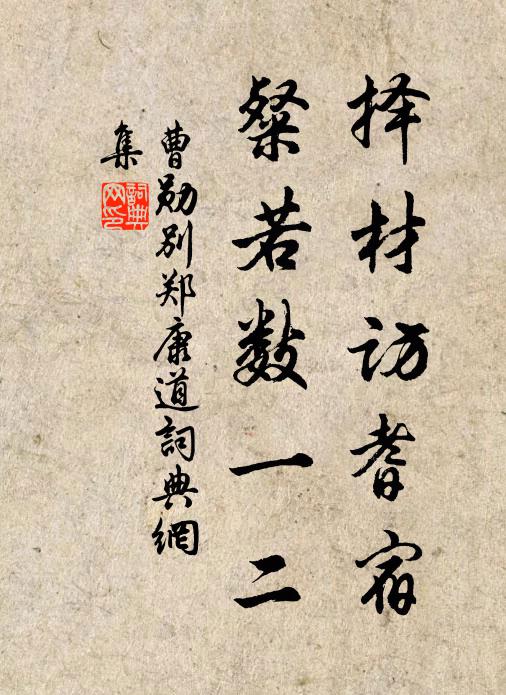 择材访耆宿
粲若数一二
曹勋别郑康道詞典網
集
詞典
网印